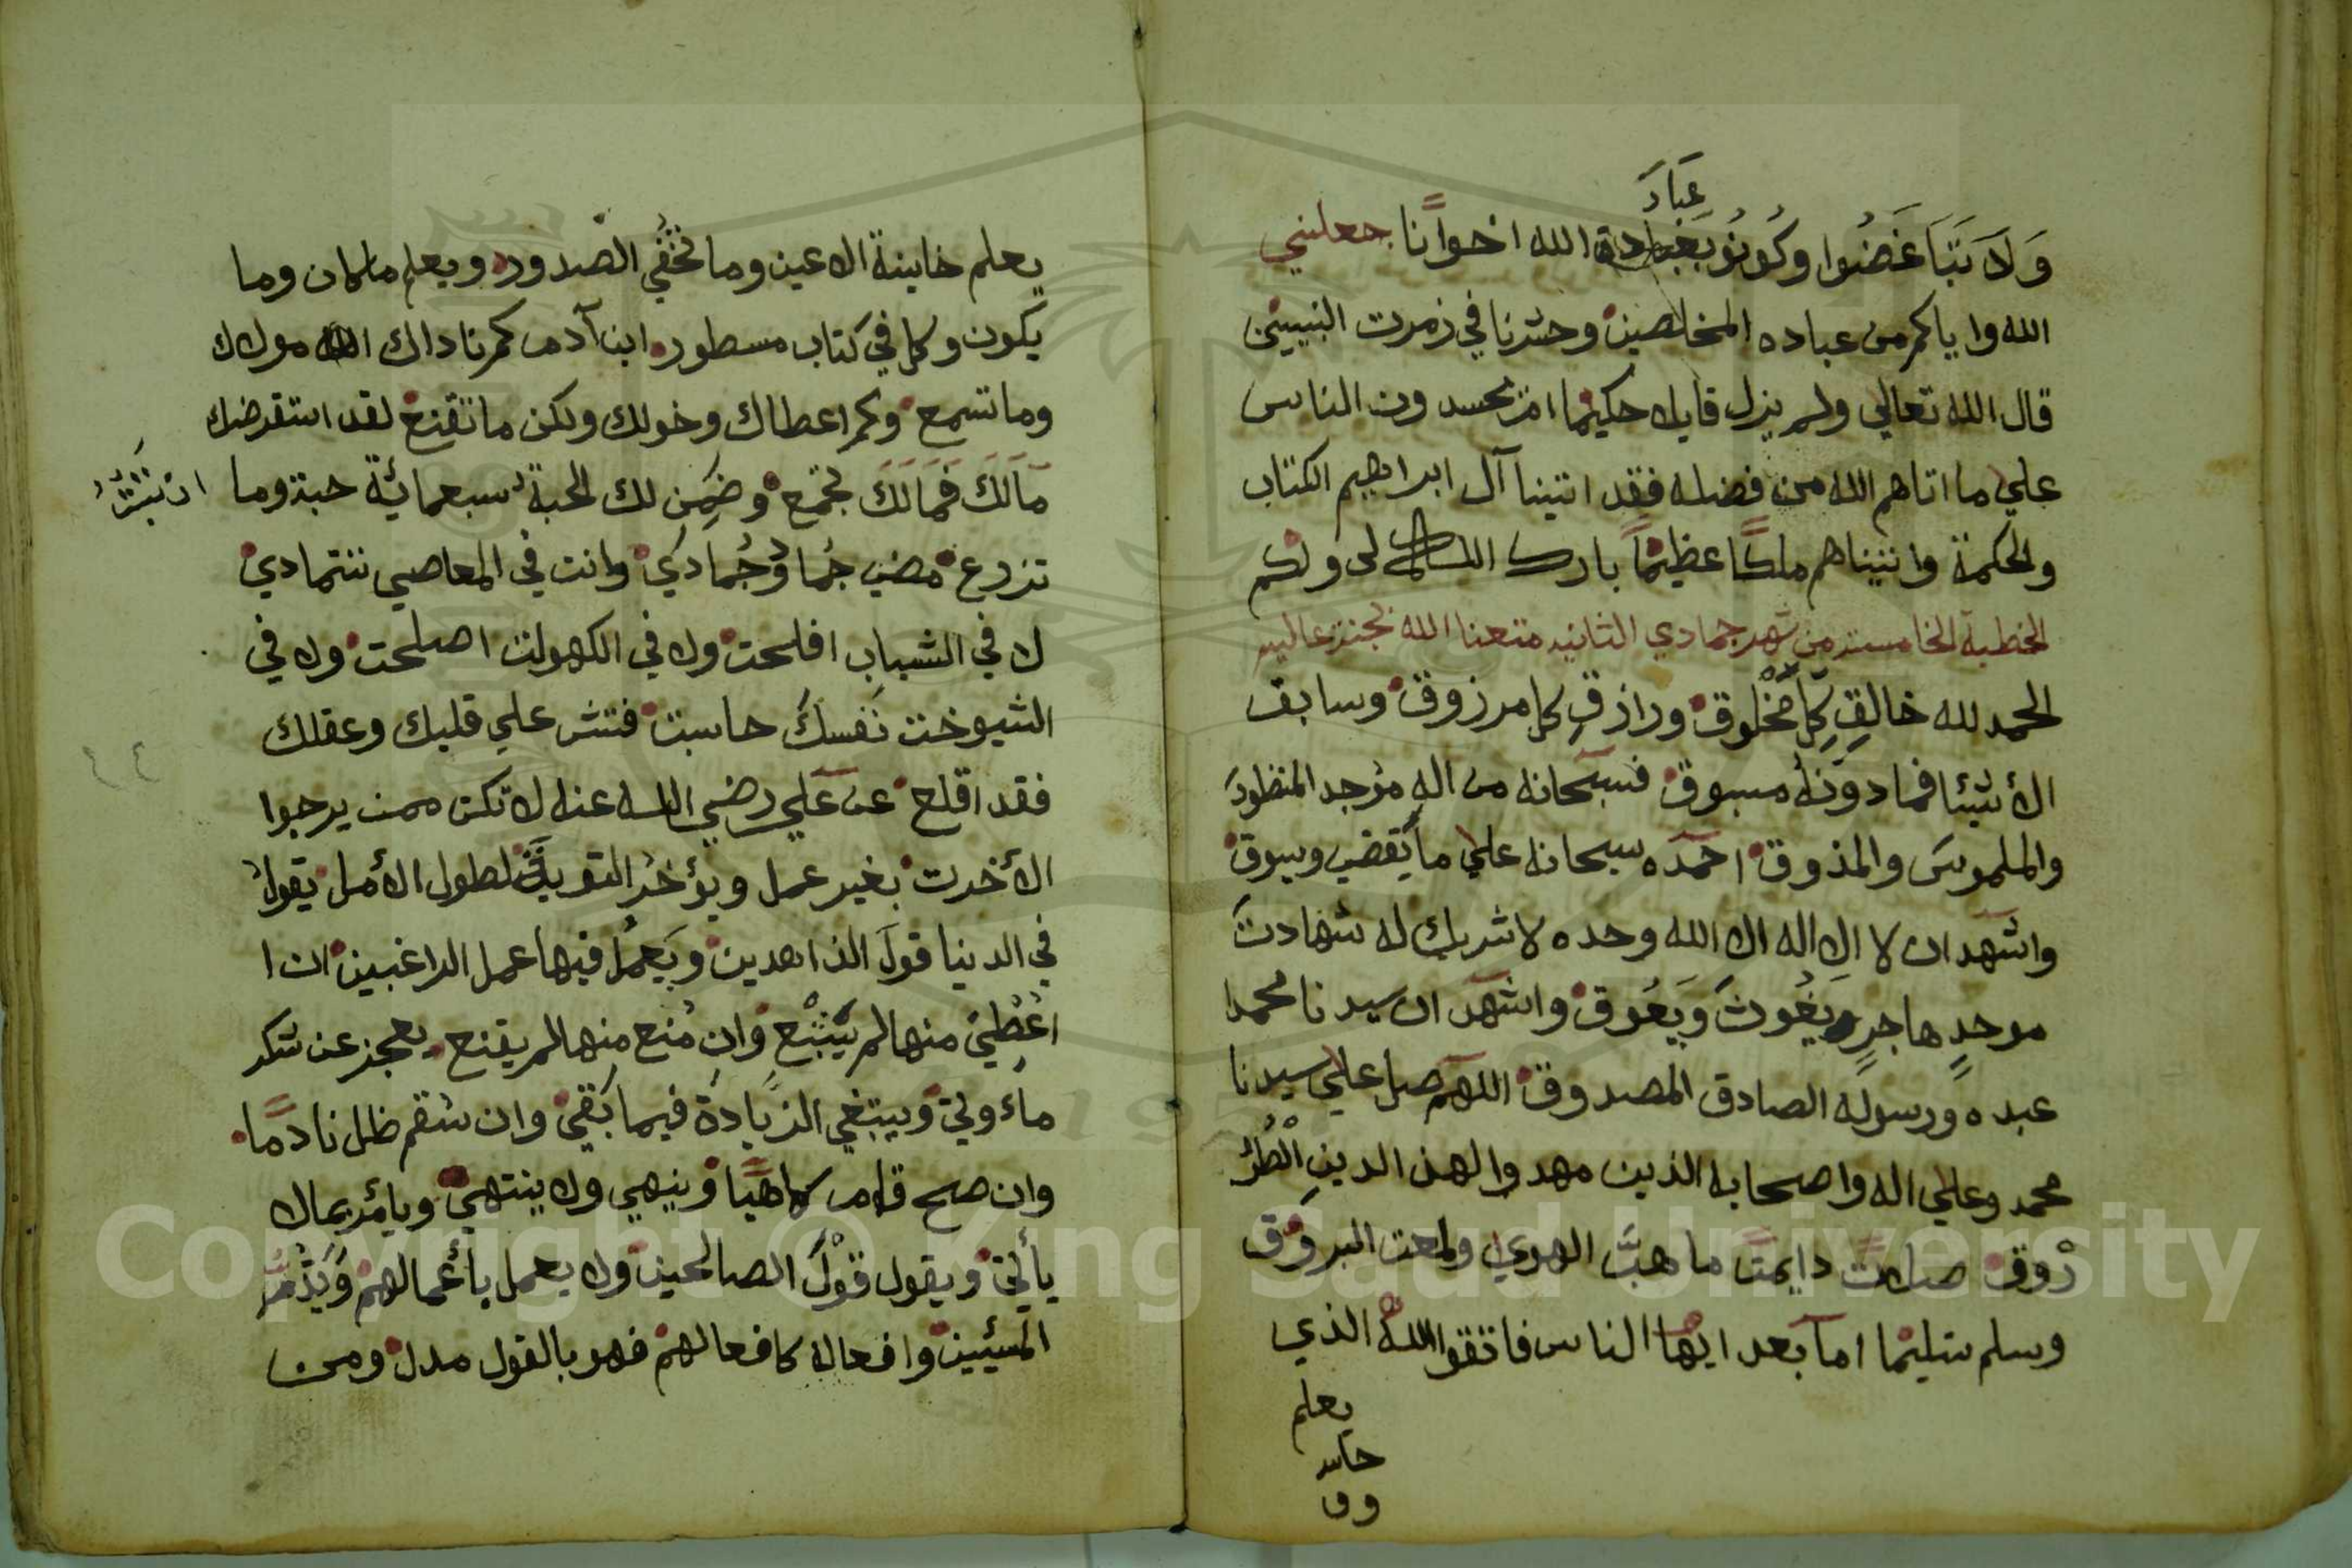 عباد
وَلَا تَبَاغَضُوا وكُونُو بغبادة الله اخوانًا جعلنيي
الله واياكم من عباده المخلصين وحشرنا في زمرت النبيين
قال الله تعالي ولم يزل قايلا حكيما ام يحسدون الناس
علي ما اتاهم الله من فضله فقد اتينا آل ابراهيم الكتاب
والحكمة واتيناهم ملكًا عظيمًا بارك الله لى ولكم
الخطبة الخامسة من شهر جمادي الثانيه متعنا الله بجنة عاليه
الحمد لله خالق كل مخْلوق ورازقِ كل مرزوق وسابق
الأشيئا فما دونه مسبوق فسبحانه من اله موجد المنظور
والملموس والمذوق احمده سبحانه علي ما يقضي ويسوق
واشهد ان لا اله الا الله وحده لا شريك له شهادت
موحدٍ هاجرٍ يغُوثَ وَيَعُوق واشهد ان سيدنا محمدا
عبده ورسوله الصادق المصدوق اللهم صل علي سيدنا
محمد وعلي اله واصحابه الذين مهدوا لهذ الدين الْطُرُ
رْوق صلات دايمت ما هبَّ الهوي ولمعت البروق
وسلم تسليما اما بعد ايها الناس فاتقوا الله الذي
يعلم
يعلم خاينة الاعين وما تخفي الصدور ويعلم ما كان وما
يكون وكل في كتاب مسطور ابن آدم كم ناداك الله مولاك
وما تسمع وكم اعطاك وخولك ولكن ما تقنع لقد استقرضك
مَالَكَ فَمَالَكَ تجمع وضَمِنَ لك الحبة سبعمائة حبة وما
تزرع مضي جُما وجُمادي وانت في المعاصي تتمادي
لا في الشباب افلحت ولا في الكهولت اصلحت ولا في
الشيوخت نَفسك حاسبت فتش علي قلبك وعقلك
فقد اقلع عن علي رضي الله عنه لا تكن ممن يرجوا
الأخرت بغير عمل ويؤخر التوبة لطول الأمل يقول
في الدنيا قول الزاهدين ويعمل فيها عمل الراغبين ان ا
اعُطِي منها لم يَشْبَع وان مُنع منها لم يقنع يعجز عن شكر
ما ءوتي ويبتغي الزيادة فيما بقي وان سقم ظل نادمًا
وان صح قام لاهيًا وينهي ولا ينتهي ويأمر بما لا
يأتي ويقول قول الصالحين ولا يعمل بأعمالهم وَيَذُمُّ
المسيئين وافعاله كافعالهم فهو بالقول مدل ومن